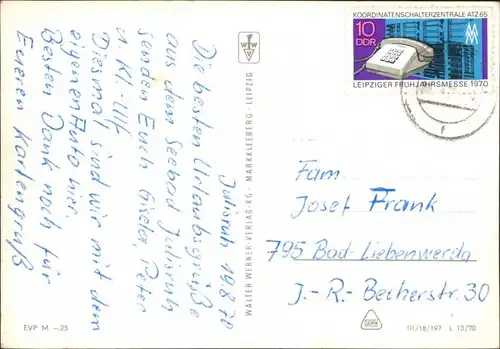 Juliusruh 19.8.70
Die besten Urlaubsgrüße
aus dem Seebad Juliusruh
senden Euch Gisela, Peter
u. Kl.-Ulf
Diesmal sind wir mit dem
eigenen Auto hier.
Besten Dank noch für
Eueren Kartengruß
EVP M –.25
WALTER WERNER-VERLAG-KG · MARKKLEEBERG - LEIPZIG
KOORDINATENSCHALTERZENTRALE ATZ 65
10
DDR
LEIPZIGER FRÜHJAHRSMESSE 1970
Fam.
Josef Frank
795 Bad Liebenwerda
J.-R.-Becherstr. 30
III/18/197 L 13/70